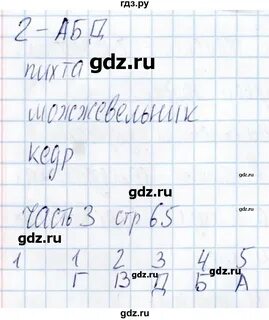 гдз.ру
2 - АБД
gdz.ru
пихта
gdz.ru
можжевельник
кедр
gdz.ru
gdz.ru
часть 3 стр 65
gdz.ru
1 1 2 3 4 5
Г В Д Б А
gdz.ru
gdz.ru